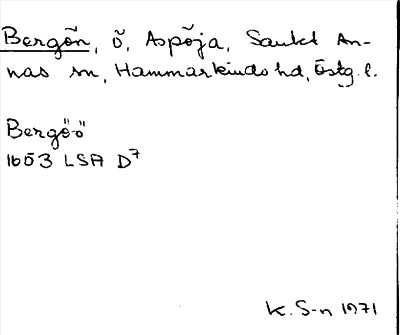 Bergõn, õ, Aspõja, Sankt An-
nas sn, Hammarkinds hd, Östg. l.
Bergö̈ö
1653 LSA D7
K. S-n 1971